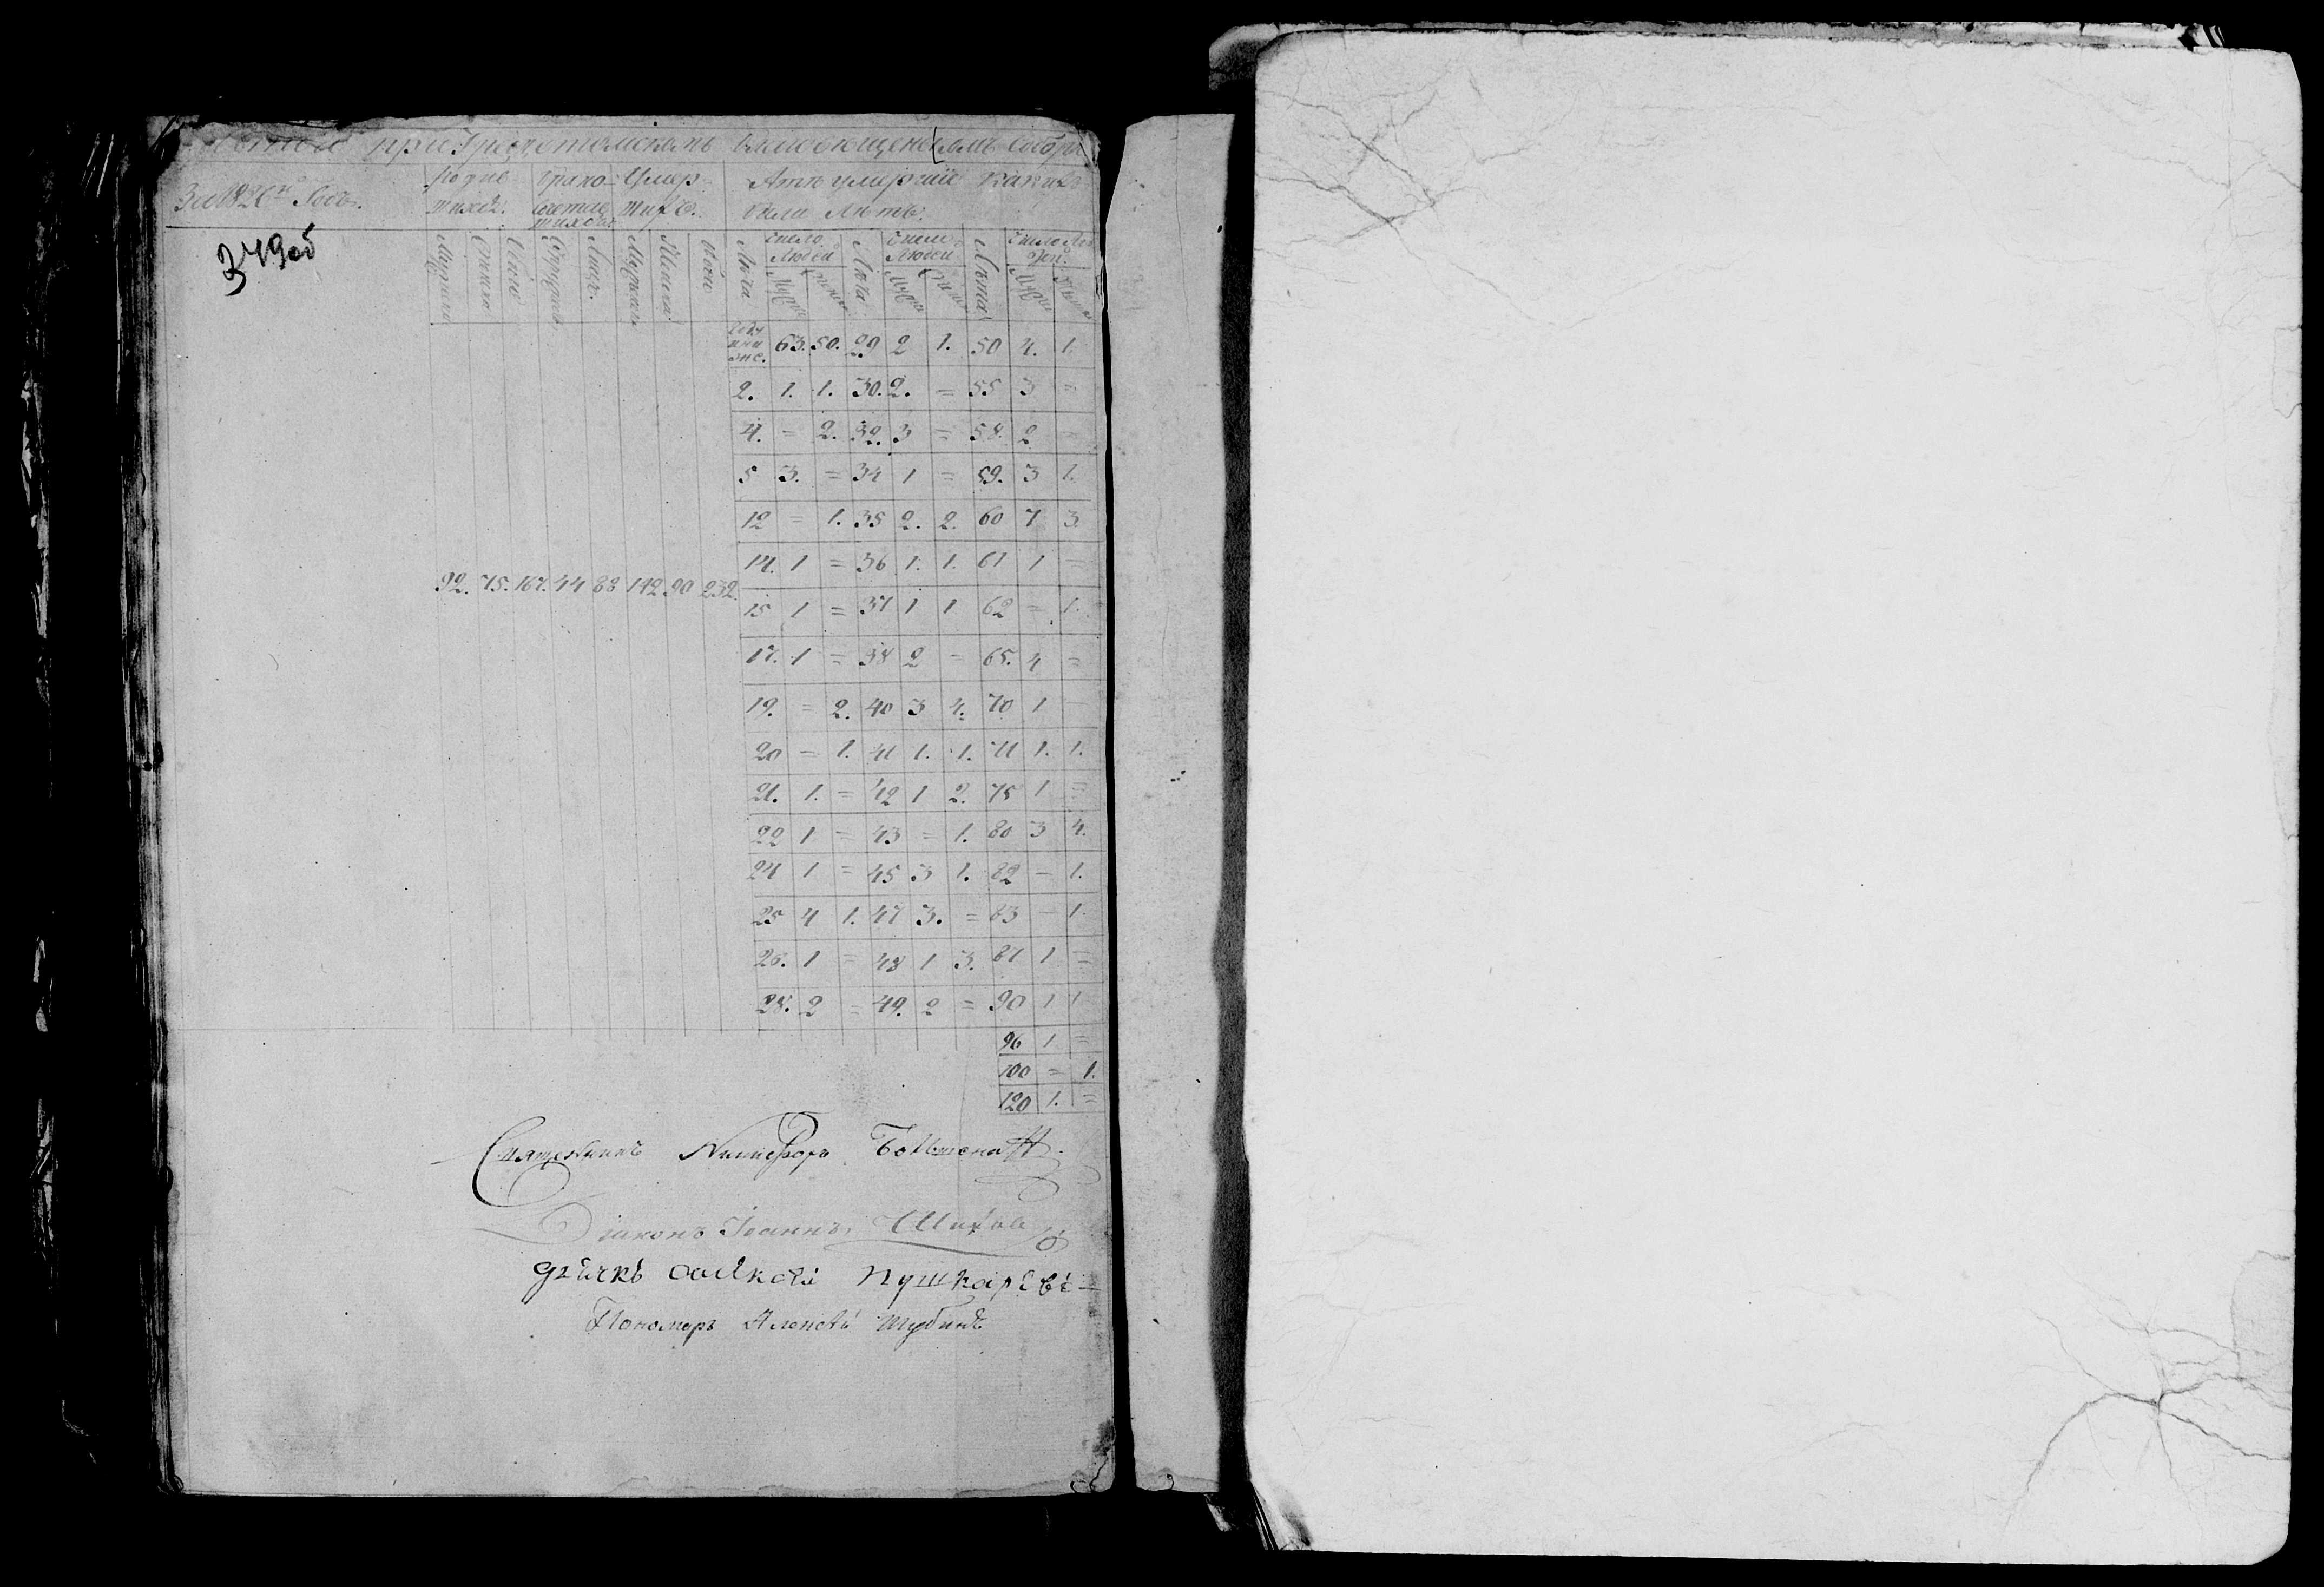 при Градотомскомъ Благовещенскомъ Соборе
За 1826й Годъ.
родив
шихся.
брако
сочетав
шихся
Умер
шихъ.
Лета умершие какихъ
были летъ.
349об
Мужска
Женска
Обоего
Лицъ.
Мужска
Женска
Обоего
Лета
Число
Людей
Лета
Число
Людей
Лета
Число Лю
дей.
92. 75. 167. 44 88 142 90 232.
63. 50. 29 2 1. 50 4. 1.
2. 1. 1. 30. 2. = 55 3 =
4. = 2. 32. 3 = 58. 2 =
5 3. = 34 1 = 59. 3 1.
12 = 1. 35 2. 2. 60 7 3.
14. 1 = 36 1. 1. 61 1 =
15 1 = 37 1 1 62 = 1.
17. 1 = 38 2 = 65. 4 =
19. = 2. 40 3 4. 70 1 =
20 = 1. 41 1. 1. 71 1. 1.
21. 1. = 42 1 2. 75 1 =
22 1 = 43 = 1. 80 3 4.
24 1 = 45 3 1. 82 = 1.
25 4 1. 47 3. = 83 = 1.
26. 1 = 48 1 3. 87 1 =
28. 2 = 49. 2 = 90 1 1
96 1 =
100 = 1.
120 1. =
Священникъ Никифоръ
Диаконъ Иоаннъ
дьячкъ Пушкаревъ
Пономарь Алексей Шубинъ